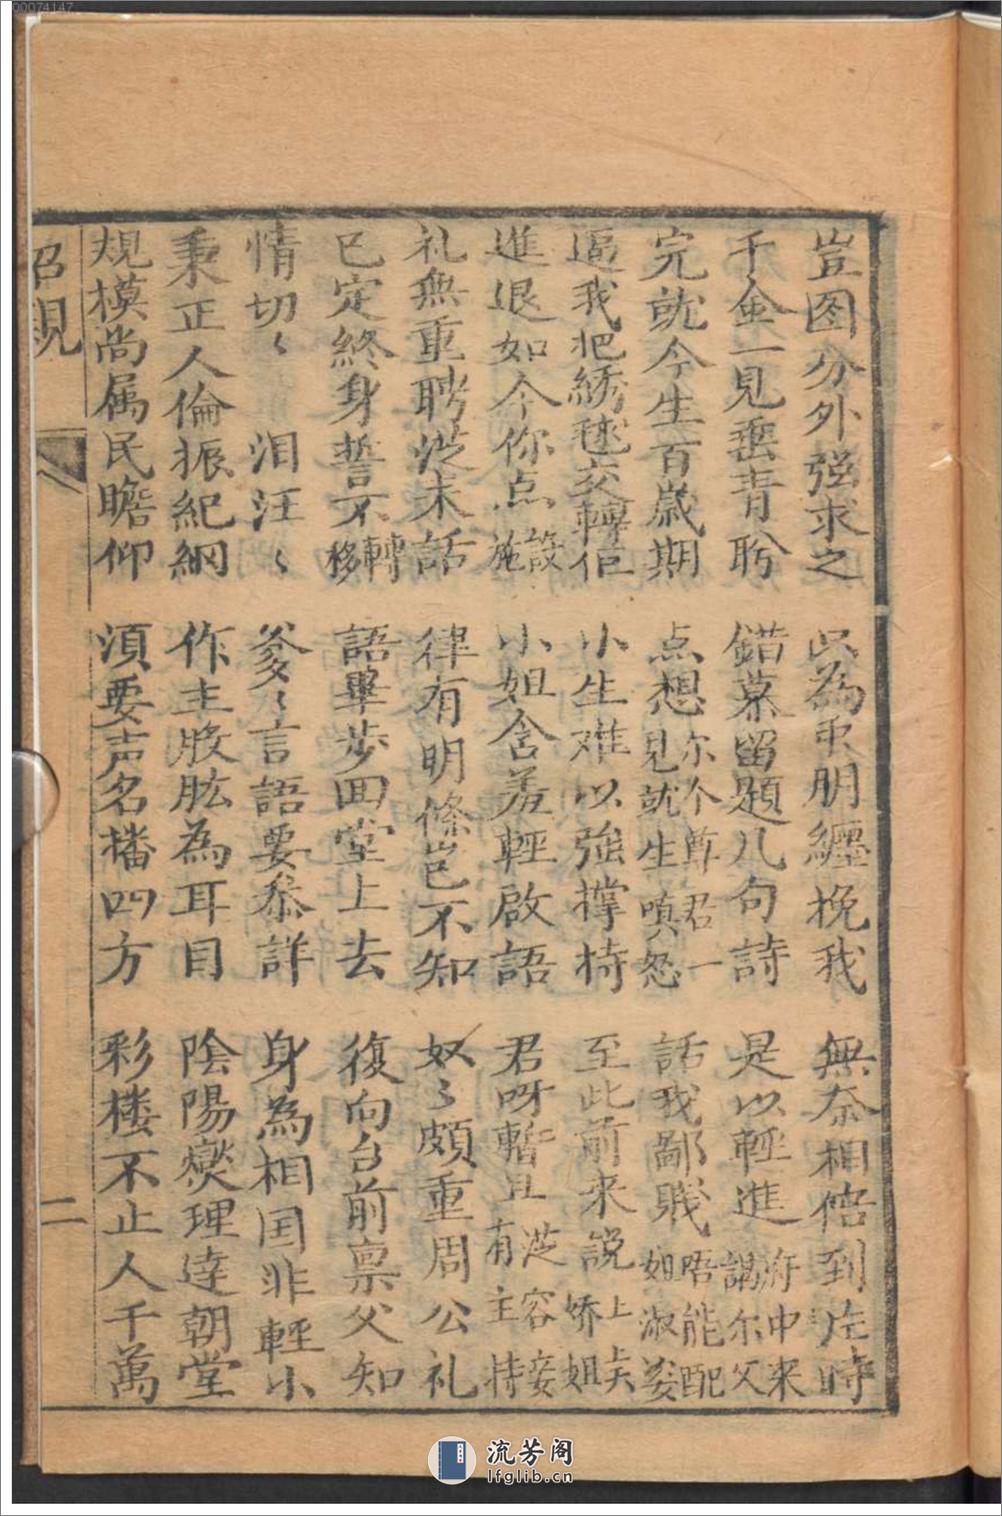 00074147
豈图分外强求之 只為朋纏挽我 無奈相偕到庄時
千金一見垂青盼 錯慕留題几句詩 是以輕進府中来謁尔父
完就今生百歳期 点想尔个尊君一見就生嗔怒 話我鄙賎唔能配如淑姿
逼我把綉毬交轉佢 小生难以強撑持 至此前来說上夫娇姐
進退如今你点設施 小姐含羞輕啟語 君呀暫且从容有妾主持
礼無重聘从未話 律有明條豈不知 奴々頗重周公礼
已定終身誓不轉移 語畢步回堂上去 復向台前禀父知
情切々 泪汪々 爹々言語要叅詳 身為相国非輕小
秉正人倫振紀綱 作主股肱為耳目 陰陽燮理達朝堂
規模尚属民瞻仰 須要声名播四方 彩楼不止人千萬
招親 二
流芳阁
lfglib.cn